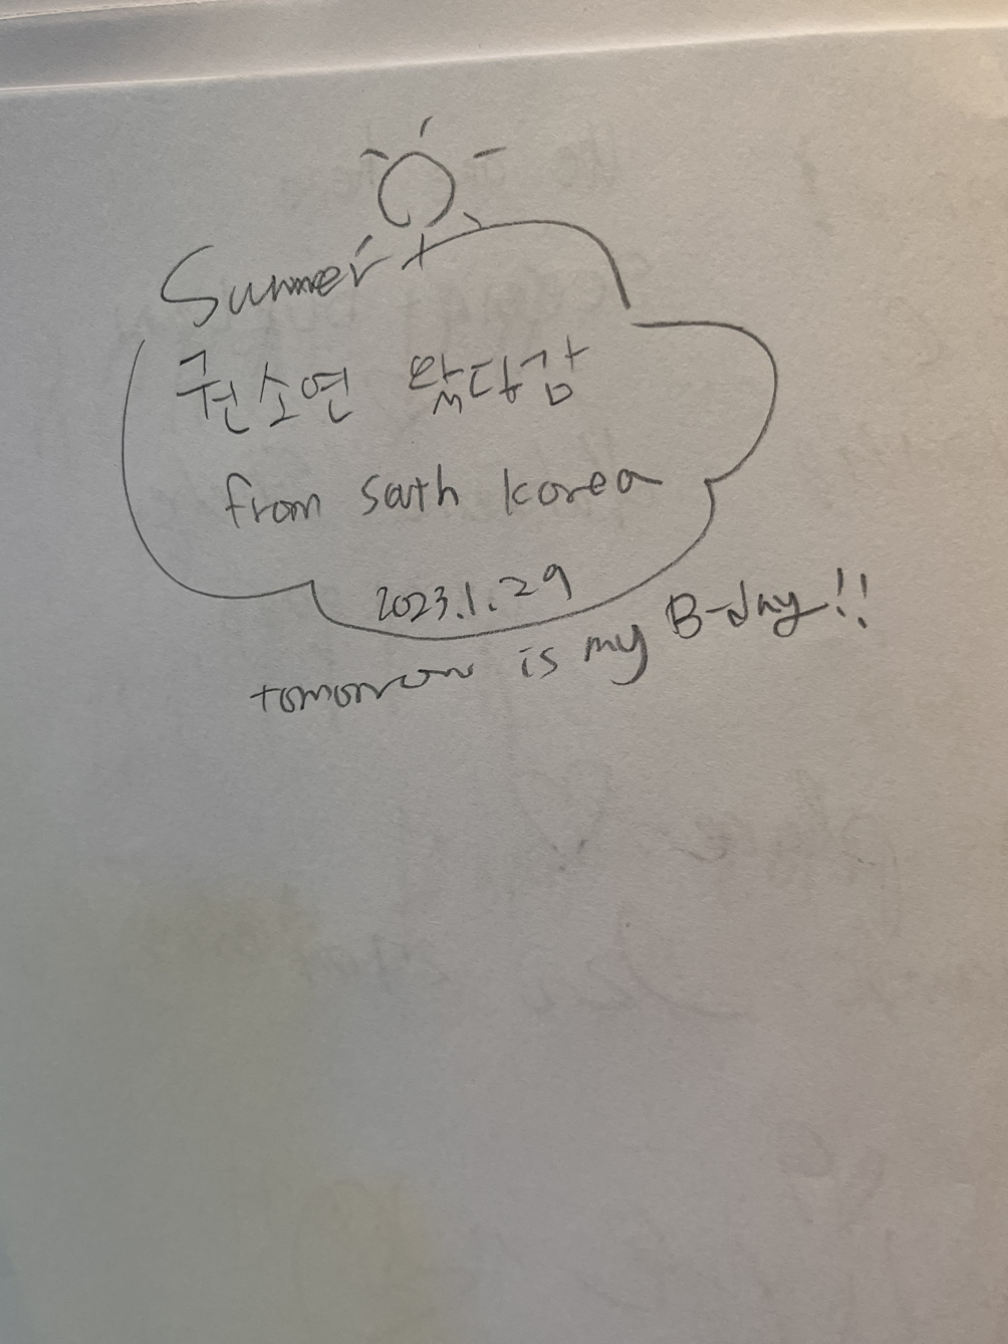 Summer
권소연 왔다감
from South korea
2023.1.29
tomorrow is my B-day!!